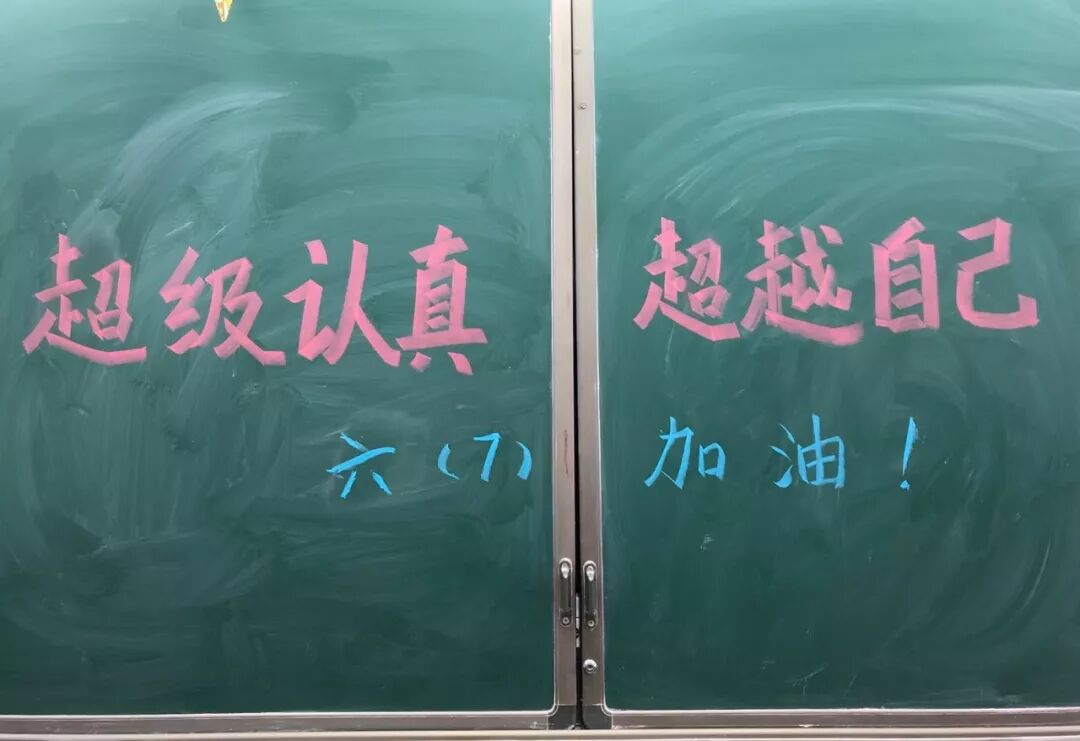 超级认真 超越自己
六(7) 加油!